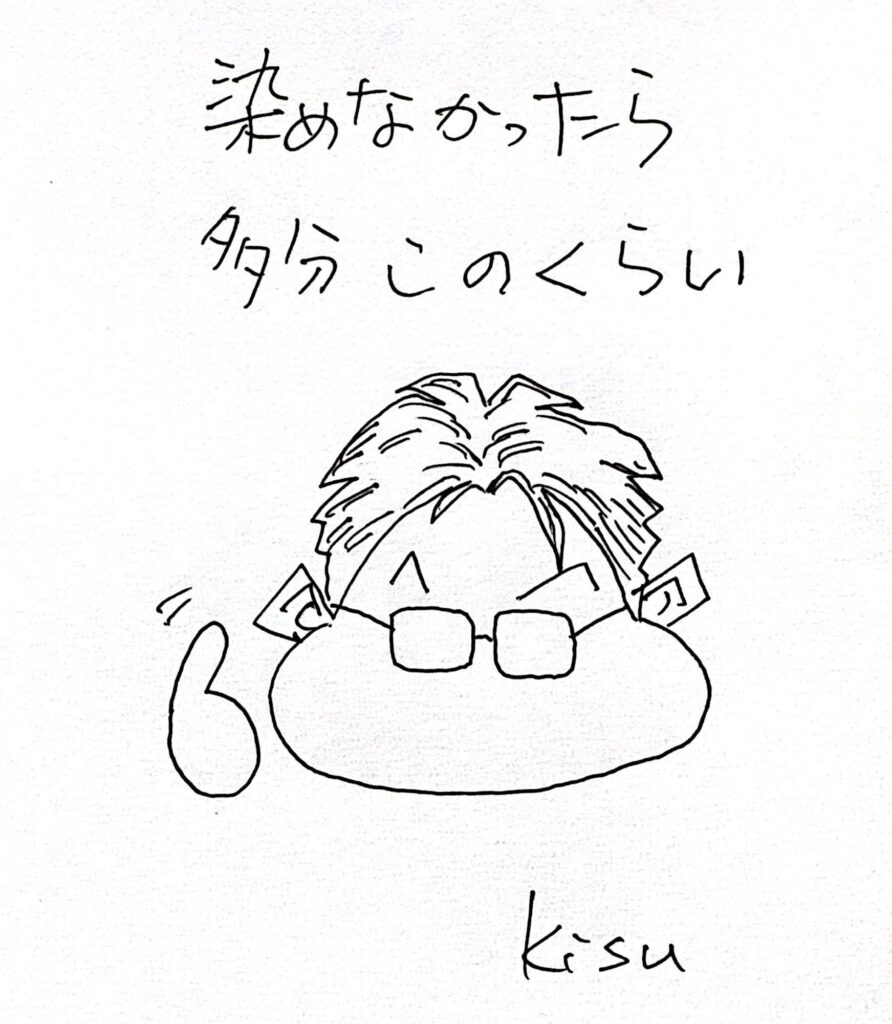 染めなかったら
多分このくらい
kisu